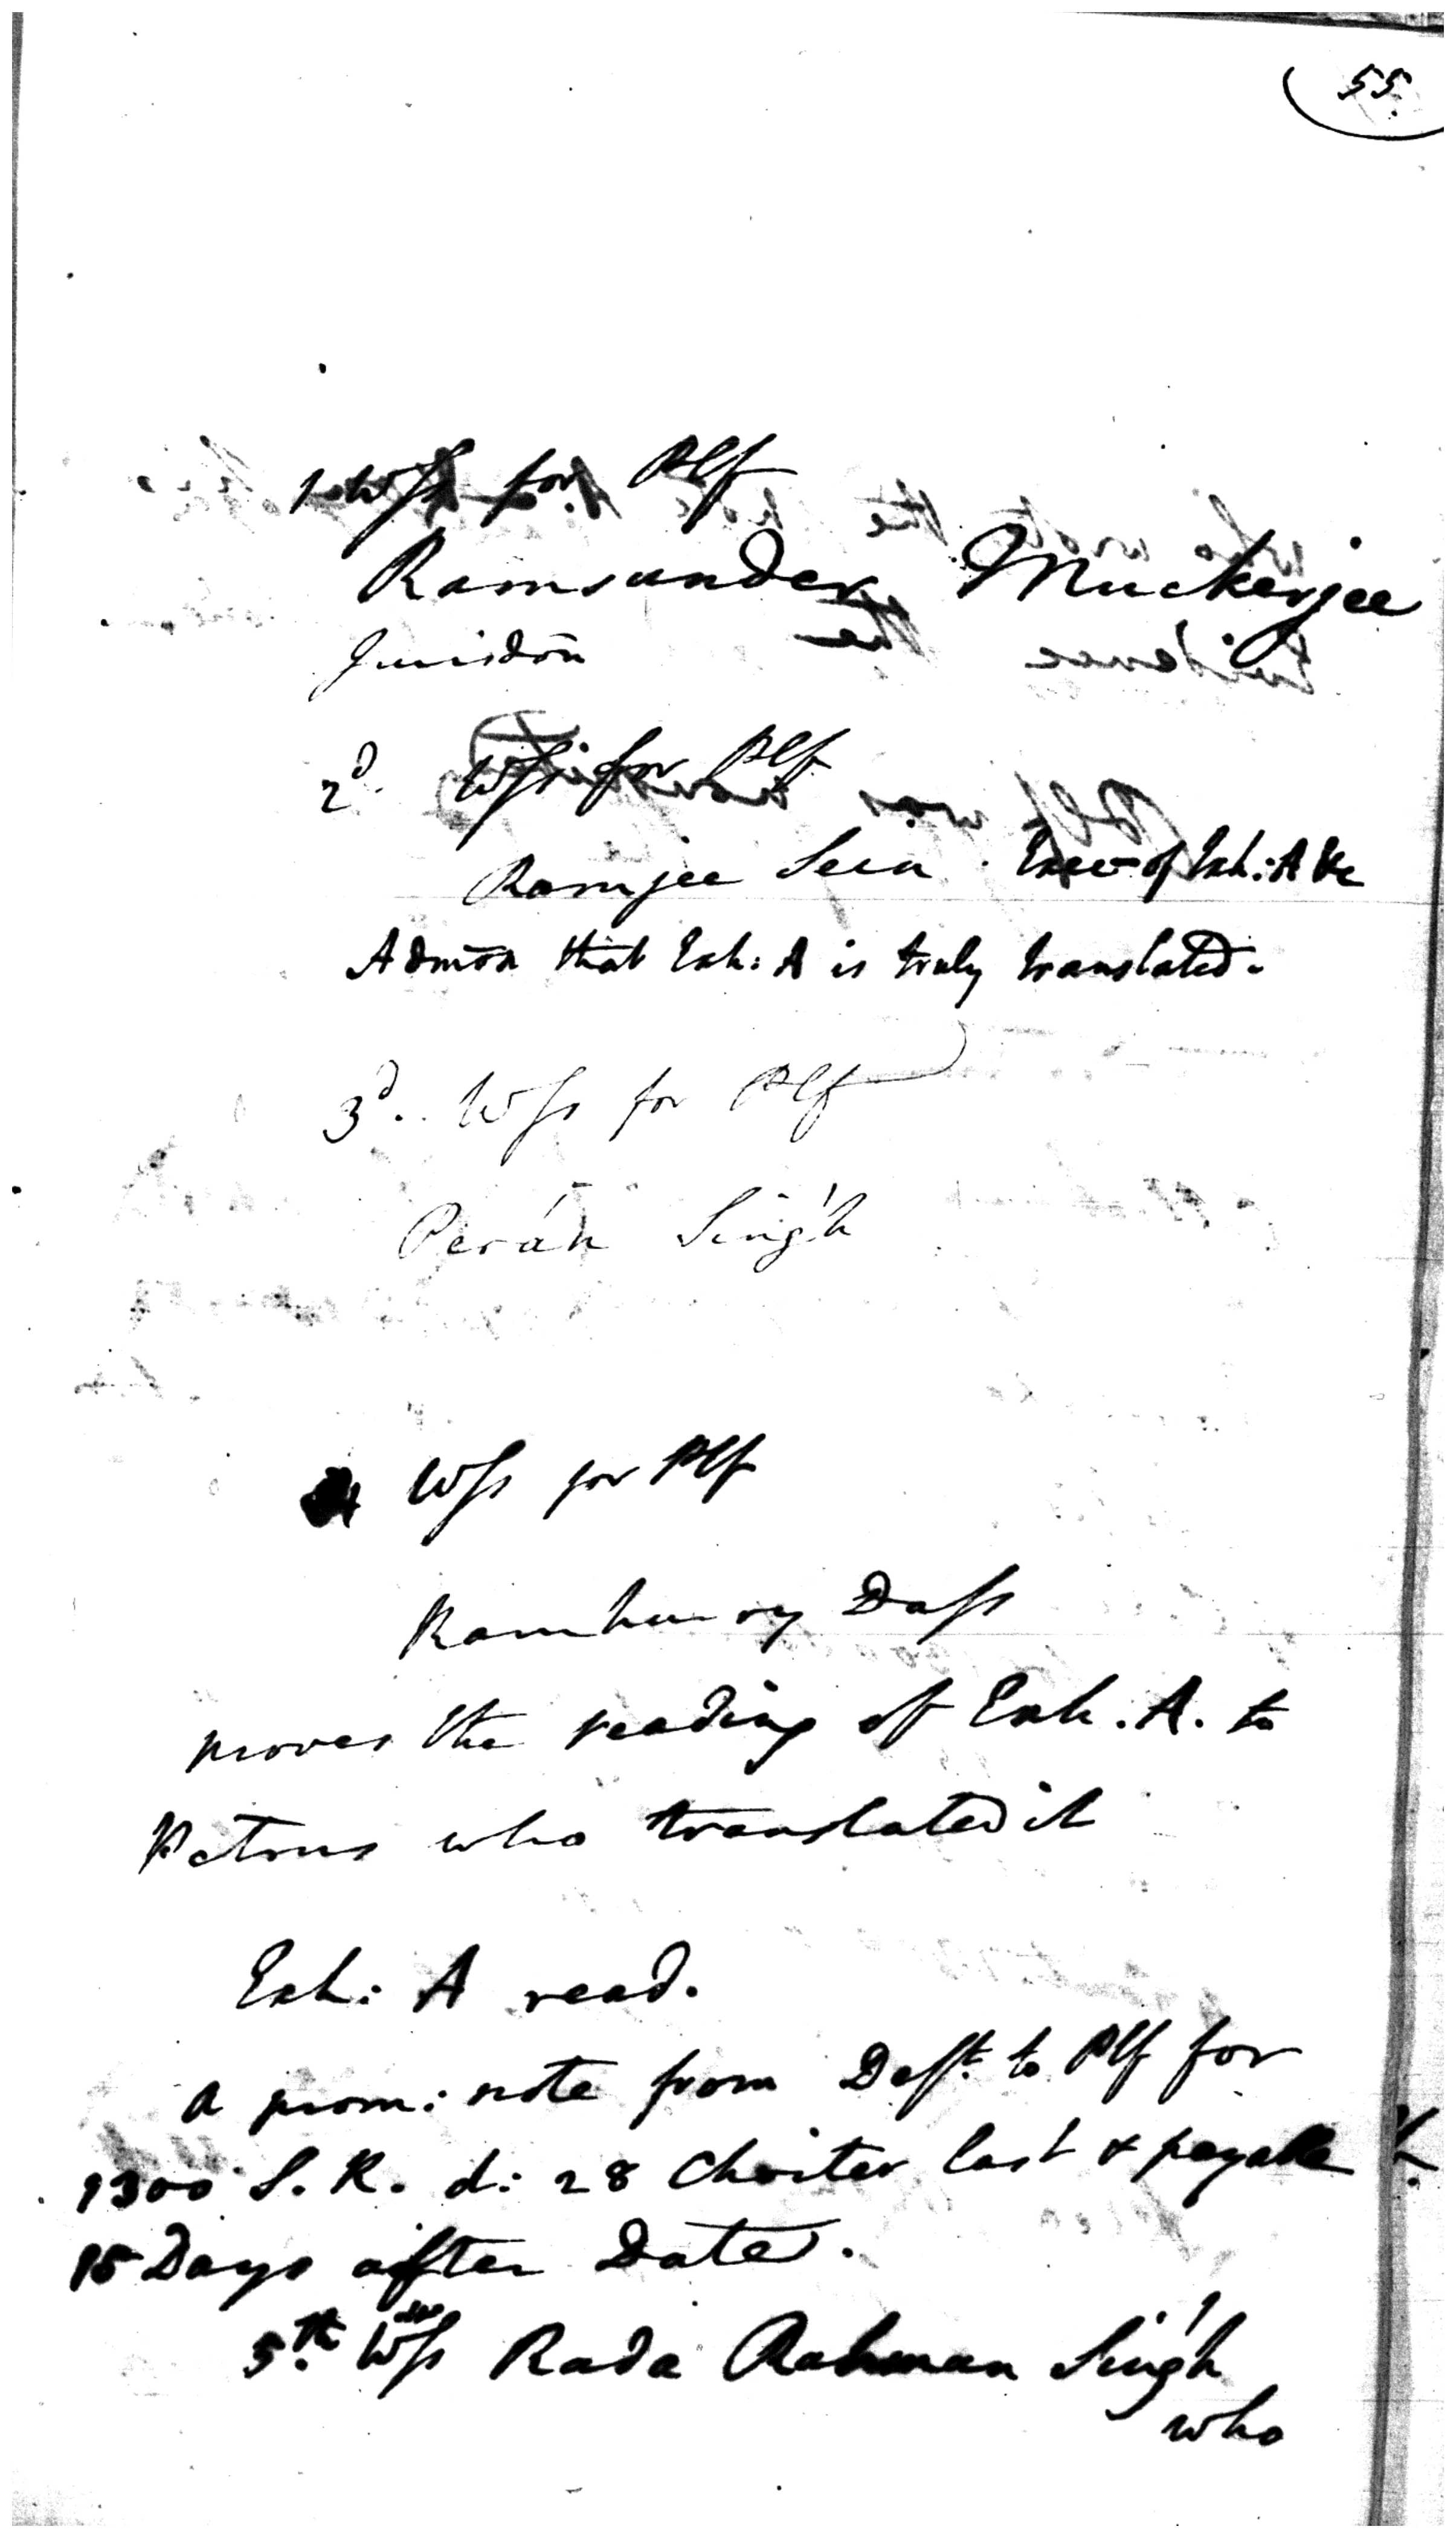 55.
1 Wss for Plf
Ramsunder Muckerjee
Jurisdōn
2d. Wss for Plf
Ramjee Sein. Exec of Exh: A &c
Admōn that Exh: A is truly translated.
3d. Wss for Plf
Perán Sing'h
4 Wss for Plf
Ramhurry Dass
proves the reading of Exh. A. to
Petrus who translated it
Exh: A read.
A prom: note from Deft. to Plf for
1300 S. R. d: 28 Choiter last & payable
15 Days after Date.
5.th Wss Rada Rahman Sing'h
who